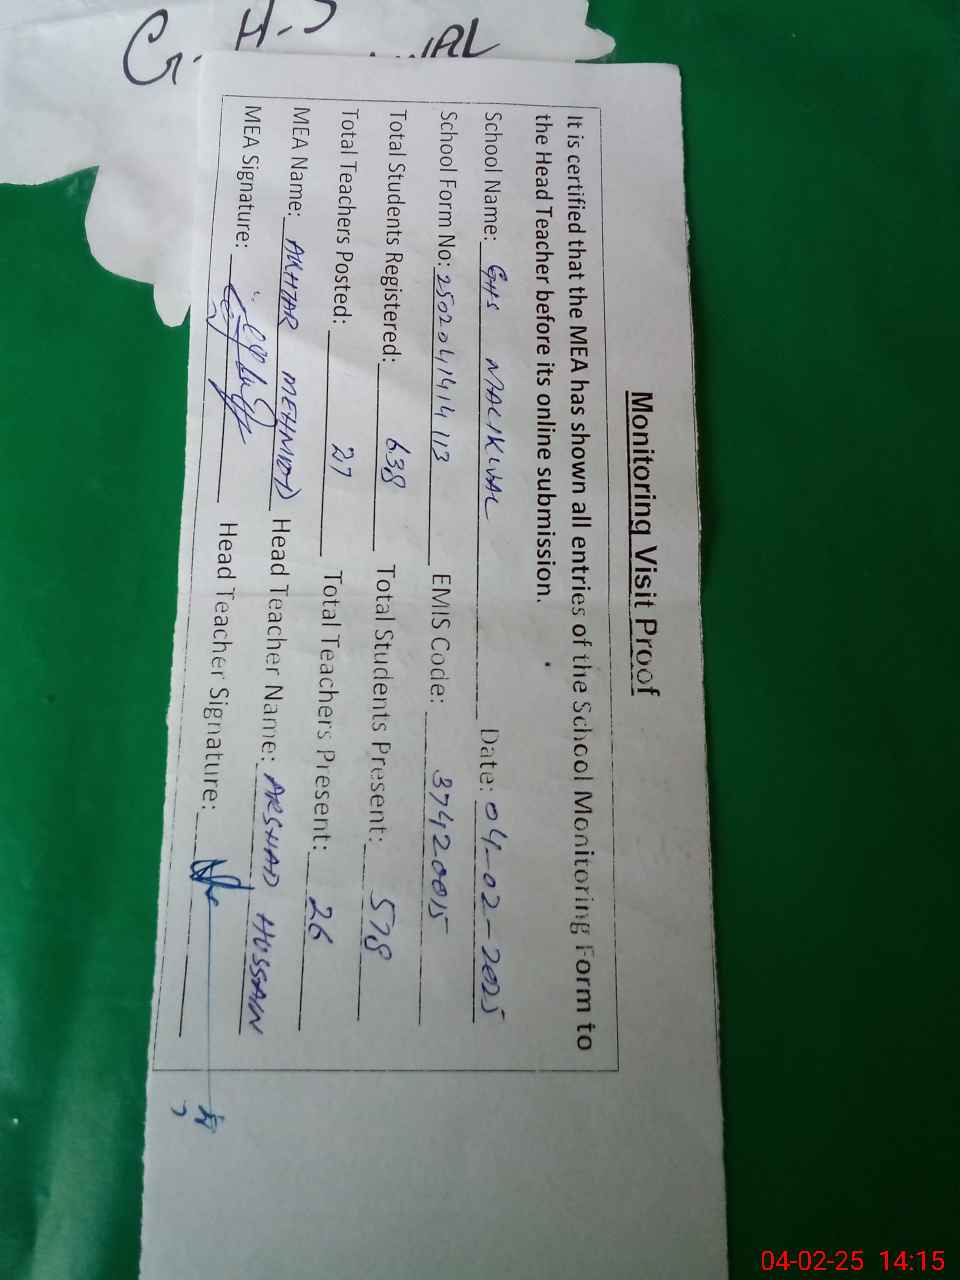 G.H.S
Monitoring Visit Proof
It is certified that the MEA has shown all entries of the School Monitoring Form to
the Head Teacher before its online submission.
School Name: GHS MALIKWAL Date: 04-02-2025
School Form No: 2502041414113 EMIS Code: 37420015
Total Students Registered: 638 Total Students Present: 578
Total Teachers Posted: 27 Total Teachers Present: 26
MEA Name: AKHTAR MEHMOOD Head Teacher Name: ARSHAD HUSSAIN
MEA Signature: Head Teacher Signature:
04-02-25 14:15